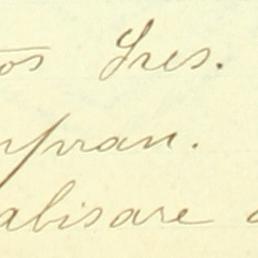 os Sres.
npran.
abisare a